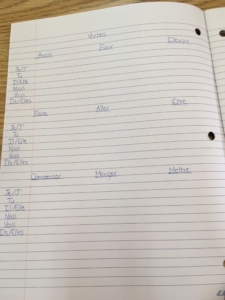 Verbes
Avoir Savoir Devoir
Je/J'
Tu
Il/Elle
Nous
Vous
Ils/Elles
Faire Aller Être
Je/J'
Tu
Il/Elle
Nous
Vous
Ils/Elles
Commencer Manger Mettre
Je/J'
Tu
Il/Elle
Nous
Vous
Ils/Elles